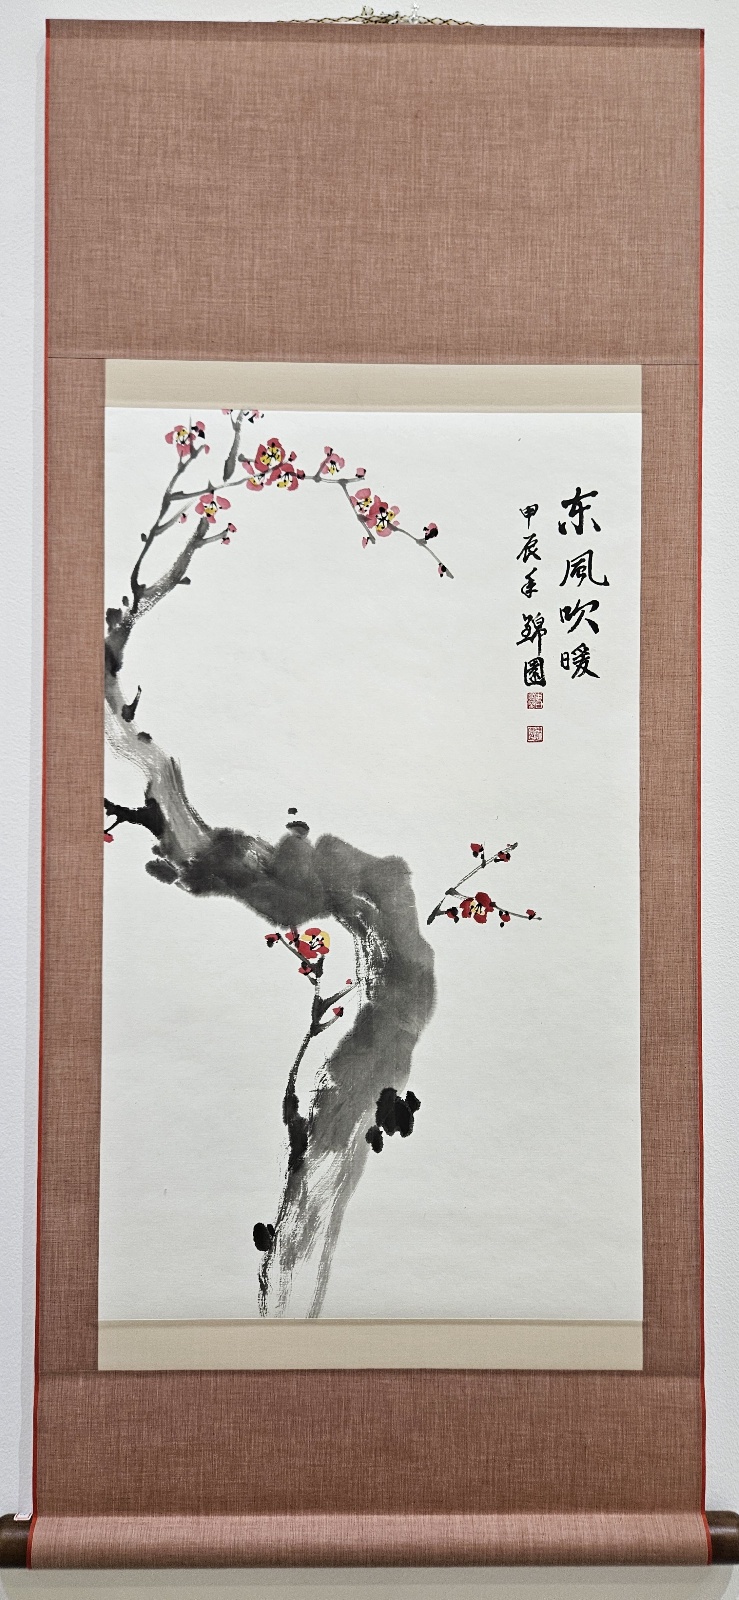 东風吹暖
甲辰年 錦園